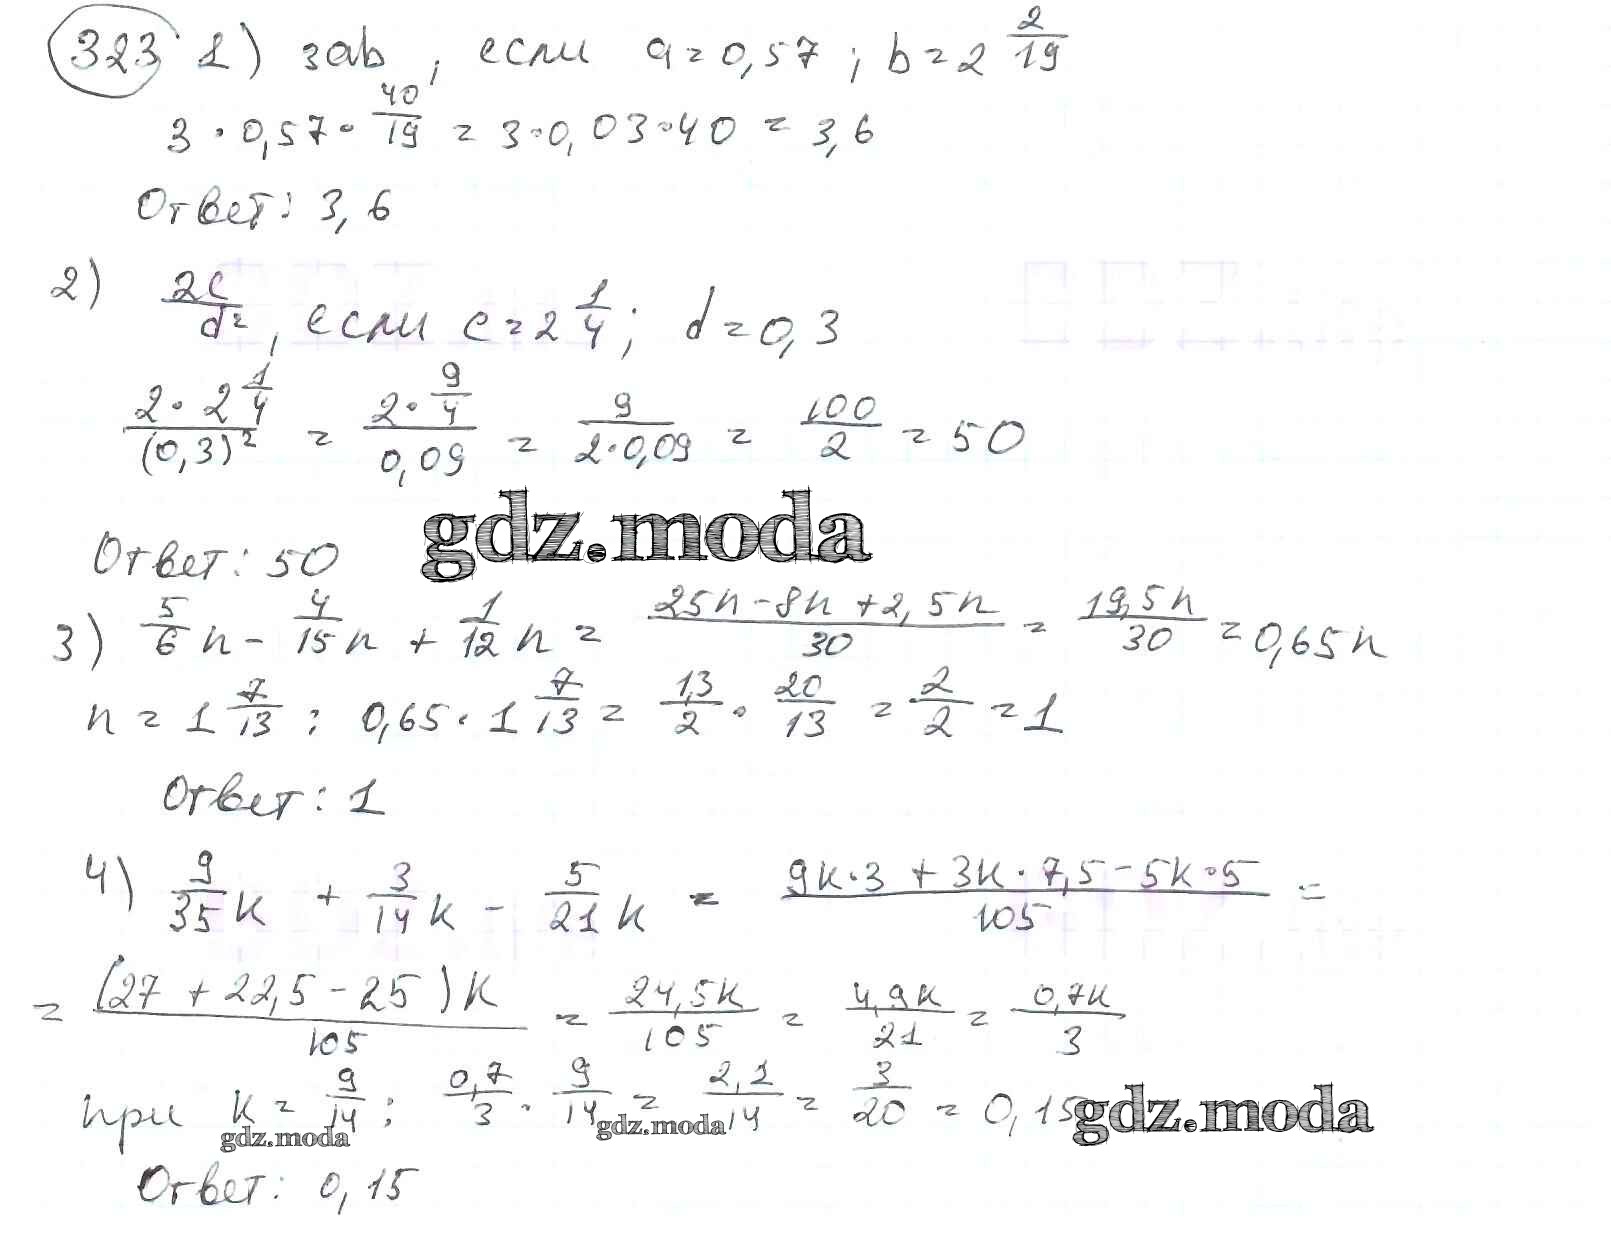 323 1) 3ab, если a=0,57; b=2 2/19
3 · 0,57 · 40/19 = 3·0,03·40 = 3,6
Ответ: 3,6
2) 2c/d², если c=2 1/4; d=0,3
2·2 1/4 / (0,3)² = 2·9/4 / 0,09 = 9/2·0,09 = 100/2 = 50
gdz.moda
Ответ: 50
3) 5/6 n - 4/15 n + 1/12 n = 25n-8n+2,5n / 30 = 19,5n/30 = 0,65n
n = 1 7/13 ; 0,65·1 7/13 = 1,3/2 · 20/13 = 2/2 = 1
Ответ: 1
4) 9/35 k + 3/14 k - 5/21 k = 9k·3+3k·7,5-5k·5 / 105 =
= (27+22,5-25)k / 105 = 24,5k/105 = 4,9k/21 = 0,7k/3
при k = 9/14 ; 0,7/3 · 9/14 = 2,1/14 = 3/20 = 0,15
gdz.moda gdz.moda gdz.moda
Ответ: 0,15